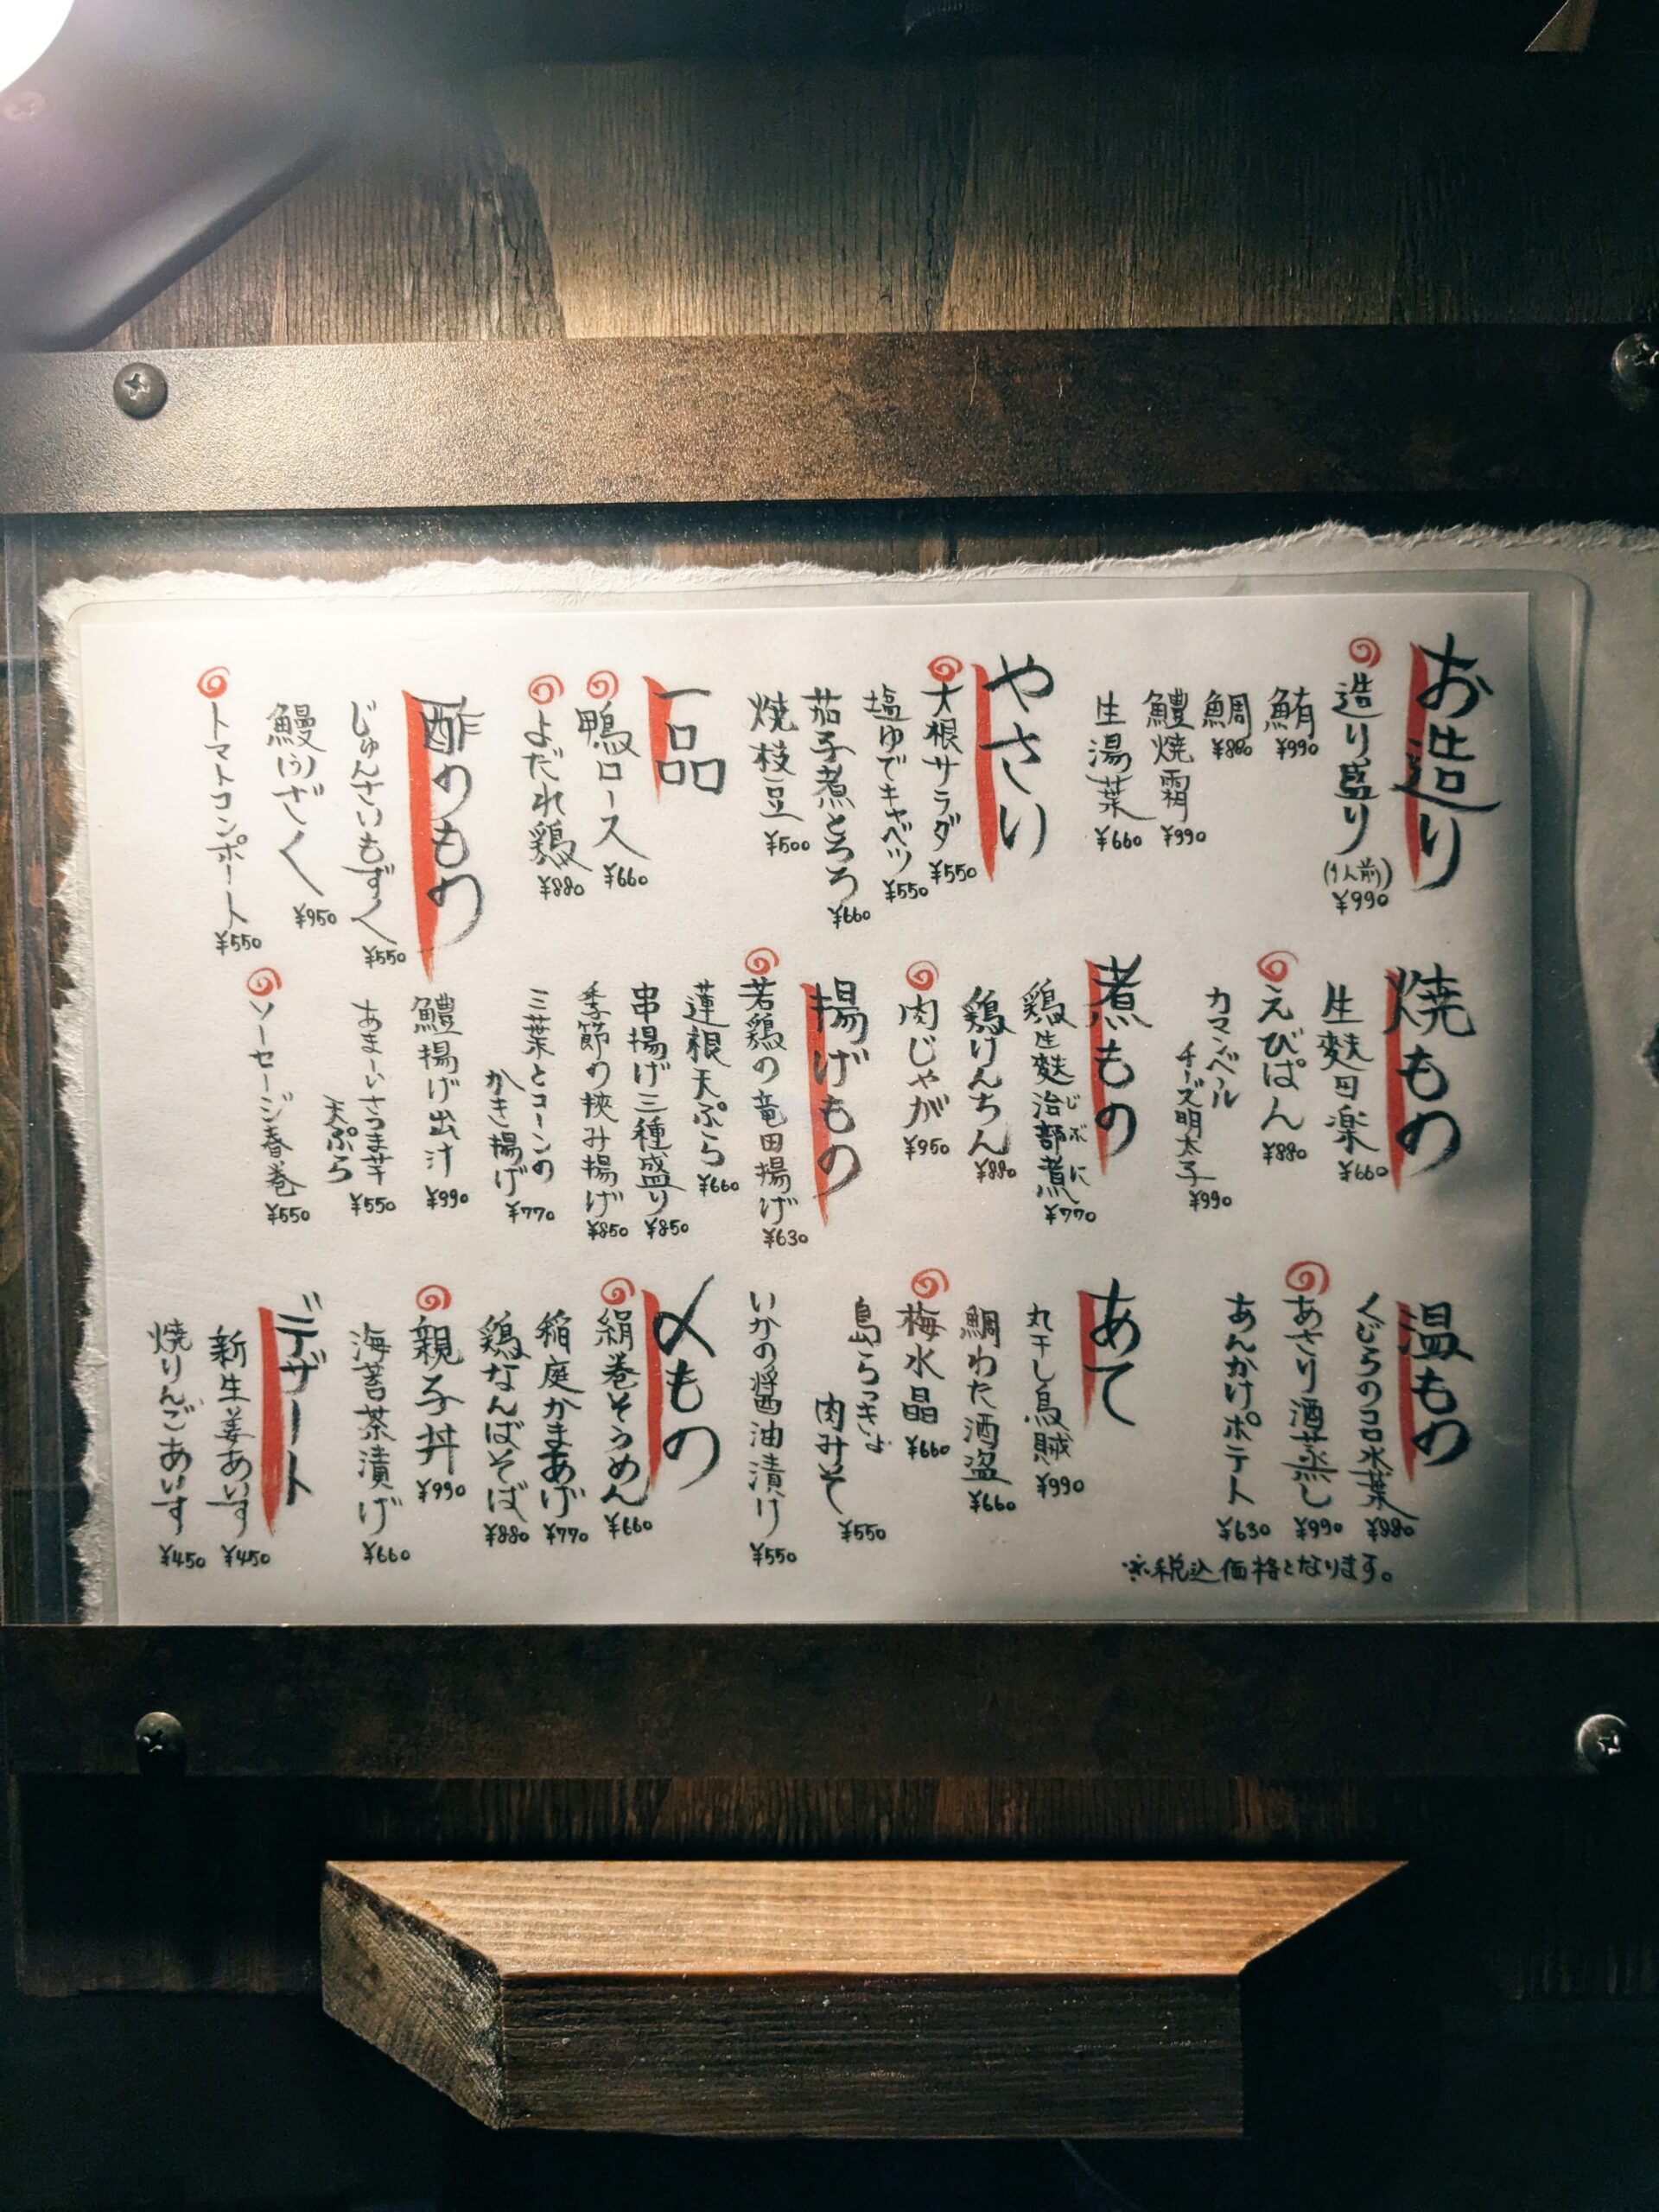 お造り
造り盛り(1人前) ¥990
鮪 ¥990
鯛 ¥880
鱧焼霜 ¥990
生湯葉 ¥660
やさい
大根サラダ ¥550
塩ゆでキャベツ ¥550
茄子煮とろろ ¥660
焼枝豆 ¥500
一品
鴨ロース ¥660
よだれ鶏 ¥880
酢のもの
じゅんさいもずく ¥550
鰻(う)ざく ¥950
トマトコンポート ¥550
焼もの
生麩田楽 ¥660
えびぱん ¥880
カマンベール
チーズ明太子 ¥990
煮もの
鶏生麩治部煮 ¥770
じぶに
鶏けんちん ¥880
肉じゃが ¥950
揚げもの
若鶏の竜田揚げ ¥630
蓮根天ぷら ¥660
串揚げ三種盛り ¥850
季節の挟み揚げ ¥850
三葉とコーンの
かき揚げ ¥770
鱧揚げ出汁 ¥990
あまーいさつま芋
天ぷら ¥550
ソーセージ春巻 ¥550
温もの
くじらのコロ水菜 ¥880
あさり酒蒸し ¥990
あんかけポテト ¥630
あて
丸干し烏賊 ¥990
鯛わた酒盗 ¥660
梅水晶 ¥660
島らっきょ
肉みそ ¥550
いかの醤油漬け ¥550
〆もの
絹巻そうめん ¥660
稲庭かまあげ ¥770
鶏なんばそば ¥880
親子丼 ¥990
海苔茶漬け ¥660
デザート
新生姜あいす ¥450
焼りんごあいす ¥450
※税込価格となります。